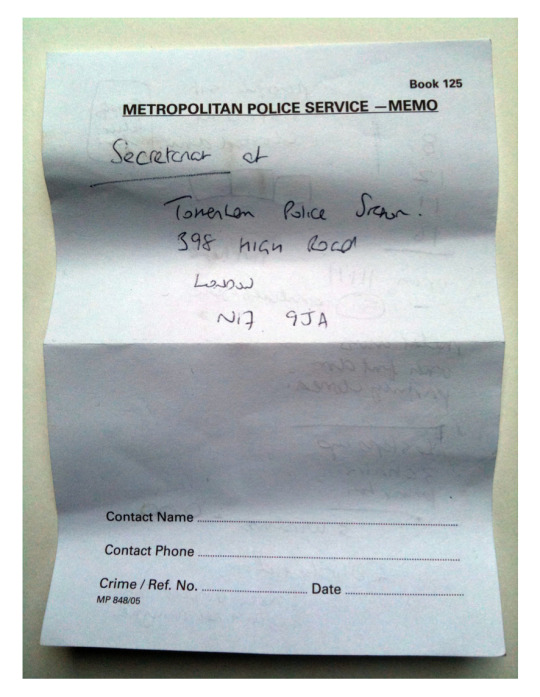 Book 125
METROPOLITAN POLICE SERVICE — MEMO
Secretariat at
Tottenham Police Station.
398 HIGH ROAD
LONDON
N17 9JA
Contact Name
Contact Phone
Crime / Ref. No. Date
MP 848/05